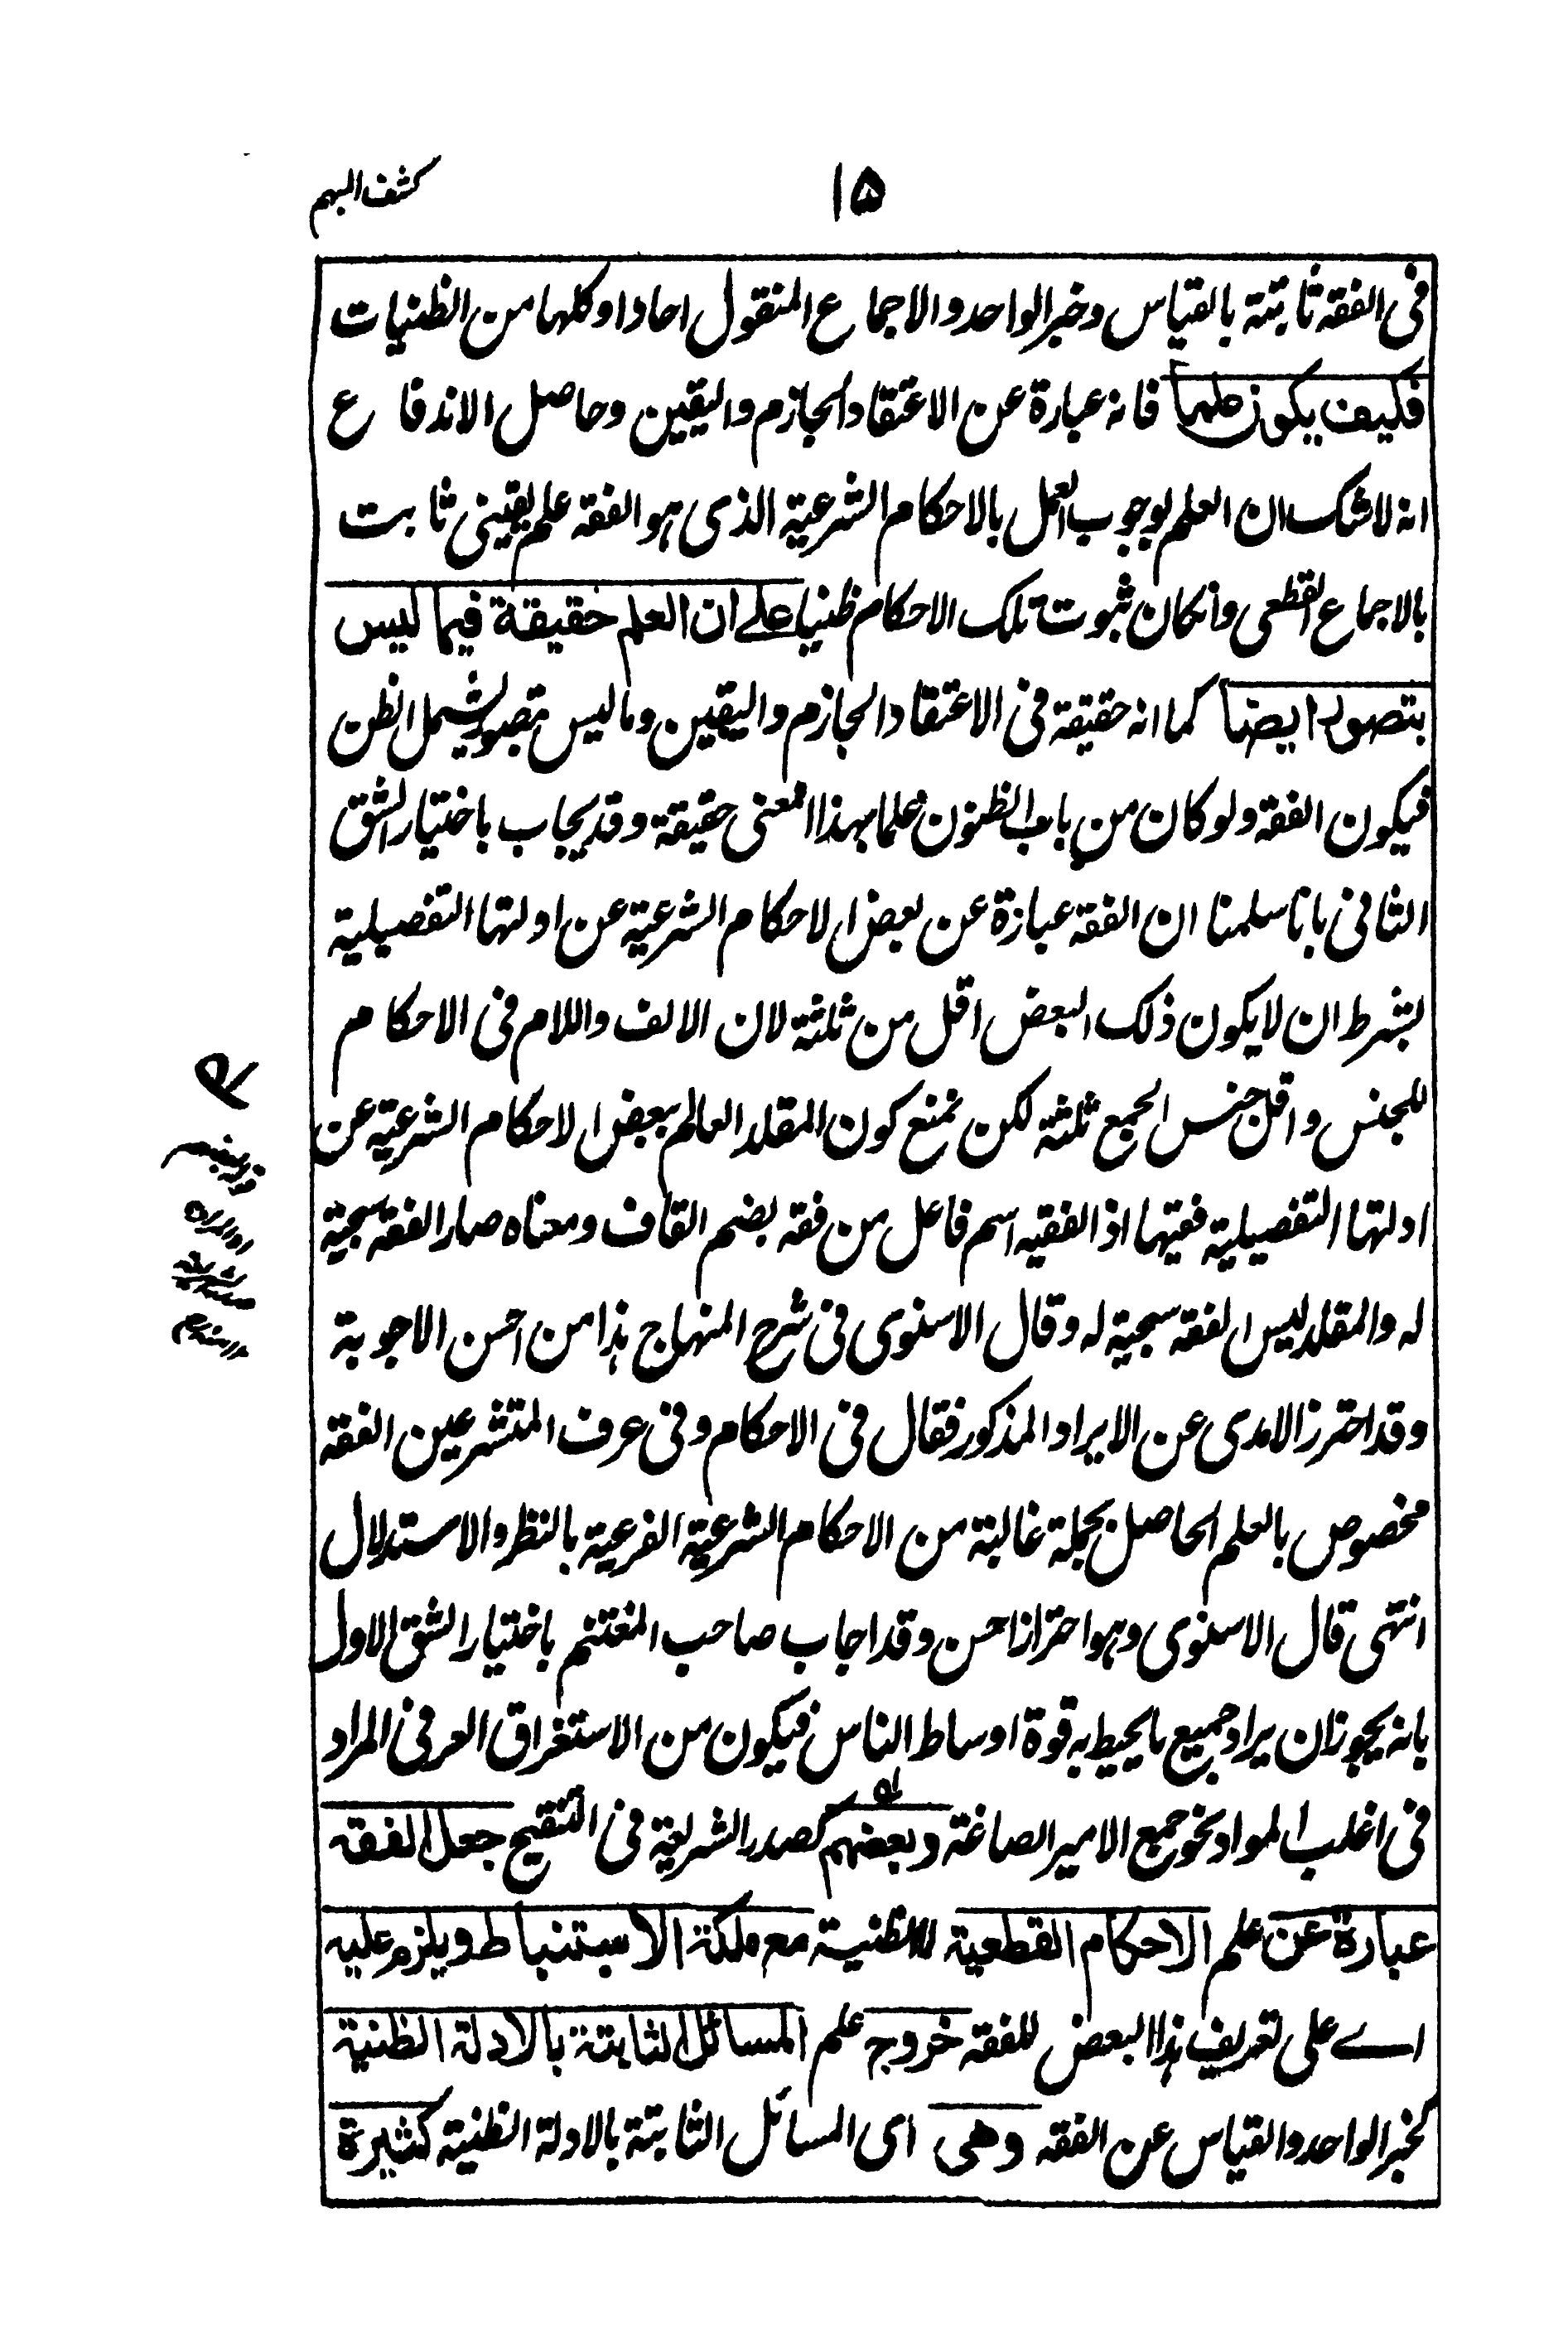 ١٥
كشف المبهم
فى الفقه ثابتة بالقياس وخبر الواحد والاجماع المنقول احادا وكلها من الظنيات
فكيف يكون علما فانه عبارة عن الاعتقاد الجازم واليقين وحاصل الاندفاع
انه لا شك ان العلم بوجوب العمل بالاحكام الشرعية الذى هو الفقه علم يقينى ثابت
بالاجماع القطعى وانكان ثبوت تلك الاحكام ظنيا على ان العلم حقيقة فيما ليس
بتصور ايضا كما انه حقيقة فى الاعتقاد الجازم واليقين وما ليس بتصور يشمل الظن
فيكون الفقه ولو كان من باب الظنون علما بهذا المعنى حقيقة وقد يجاب باختيار الشق
الثانى بانا سلمنا ان الفقه عبارة عن بعض الاحكام الشرعية عن ادلتها التفصيلية
بشرط ان لا يكون ذلك البعض اقل من ثلثة لان الالف واللام فى الاحكام
للجنس واقل جنس الجمع ثلثة لكن نمنع كون المقلد العالم ببعض الاحكام الشرعية عن
ادلتها التفصيلية فقيها اذ الفقيه اسم فاعل من فقه بضم القاف ومعناه صار الفقه سجية
له والمقلد ليس الفقه سجية له وقال الاسنوى فى شرح المنهاج هذا من احسن الاجوبة
وقد احترز الامدى عن الايراد المذكور فقال فى الاحكام وفى عرف المتشرعين الفقه
مخصوص بالعلم الحاصل بجملة غالبة من الاحكام الشرعية الفرعية بالنظر والاستدلال
انتهى قال الاسنوى وهو احتراز احسن وقد اجاب صاحب المغتنم باختيار الشق الاول
بانه يجوز ان يراد جميع ما يحيط به قوة اوساط الناس فيكون من الاستغراق العرفى المراد
فى اغلب المواد نحو جمع الامير الصاغة وبعضهم كصدر الشريعة فى التنقيح جعل الفقه
عبارة عن علم الاحكام القطعية لا الظنية مع ملكة الاستنباط ويلزم عليه
اے على تعريف هذا البعض للفقه خروج علم المسائل الثابتة بالادلة الظنية
كخبر الواحد والقياس عن الفقه وهى اى المسائل الثابتة بالادلة الظنية كثيرة